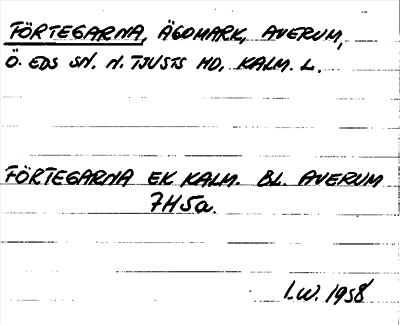 FÖRTEGARNA, ÄGOMARK, AVERUM,
Ö. EDS SN. N. TJUSTS HD, KALM. L.
FÖRTEGARNA EK KALM. BL. AVERUM
7H5a.
I.W. 1958